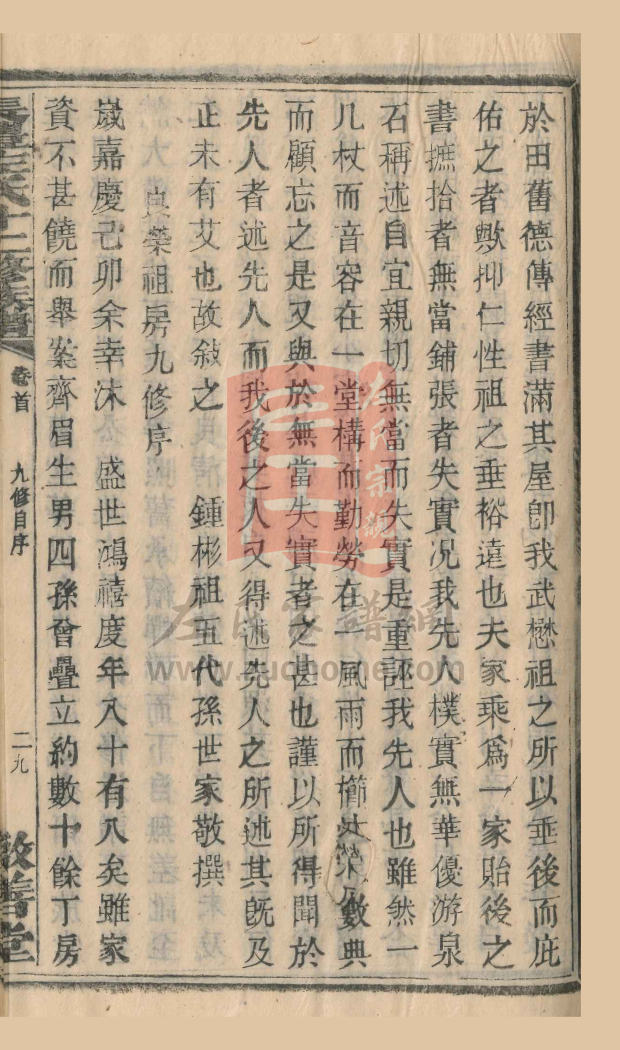 於田舊德傳經書滿其屋卽我武懋祖之所以垂後而庇
佑之者歟抑仁性祖之垂裕遠也夫家乘爲一家貽後之
書摭拾者無當鋪張者失實况我先人樸實無華優游泉
石稱述自宜親切無當而失實是重誣我先人也雖然一
几杖而音容在一堂構而勤勞在一風雨而櫛沐 數典
而顧忘之是又與於無當失實者之甚也謹以所得聞於
先人者述先人而我後之人又得述先人之所述其旣及
正未有艾也故敍之 鍾彬祖五代孫世家敬撰
良榮祖房九修序
歲嘉慶己卯余幸沐 盛世鴻禧度年八十有八矣雖家
資不甚饒而舉案齊眉生男四孫曾疊立約數十餘丁房
左氏十二修族譜
卷首
九修自序
二九
敦善堂
左氏宗親
左氏家譜網
www.zuohome.com